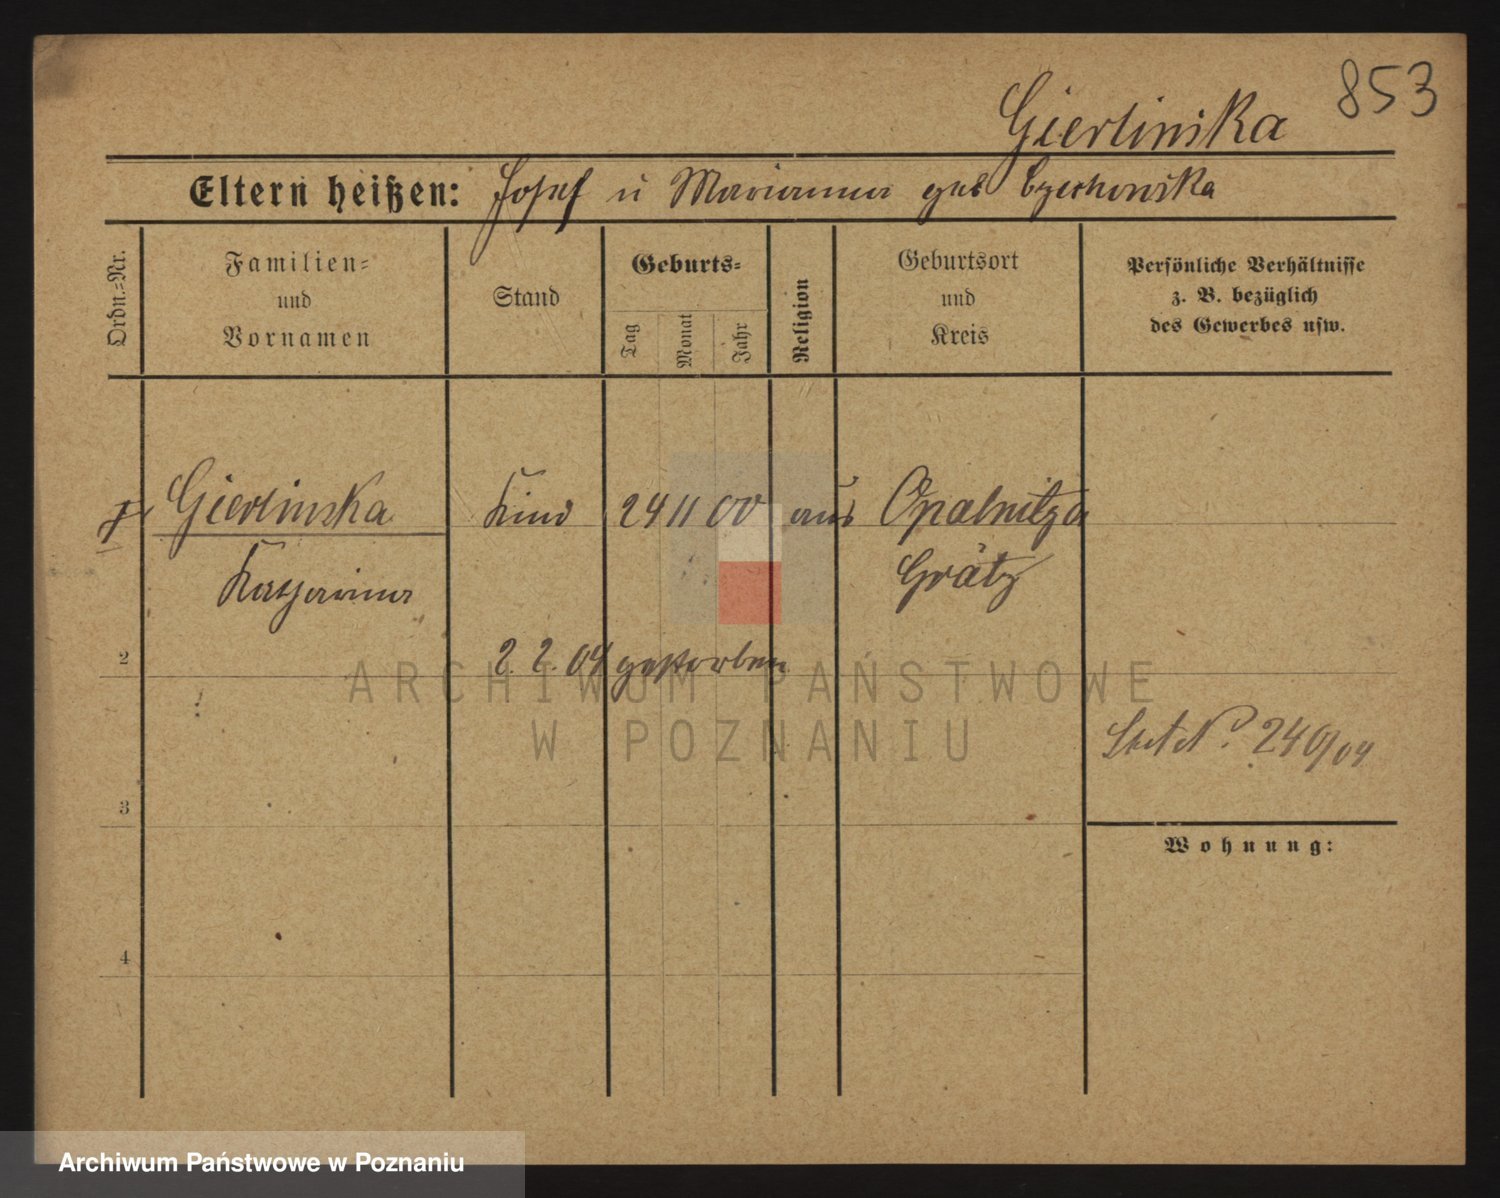 853
Gierlinska
Eltern heißen: Josef u Marianna geb Czechowska
Ordn.-Nr.
Familien-
und
Vornamen
Stand
Geburts-
Tag
Monat
Jahr
Religion
Geburtsort
und
Kreis
Persönliche Verhältnisse
z. B. bezüglich
des Gewerbes usw.
Gierlinska Kind 24 11 00 aus Opalnitza
Katharina Grätz
2
2. 2. 04 gestorben
ARCHIWUM PAŃSTWOWE
W POZNANIU
240/04
3
Wohnung:
4
Archiwum Państwowe w Poznaniu